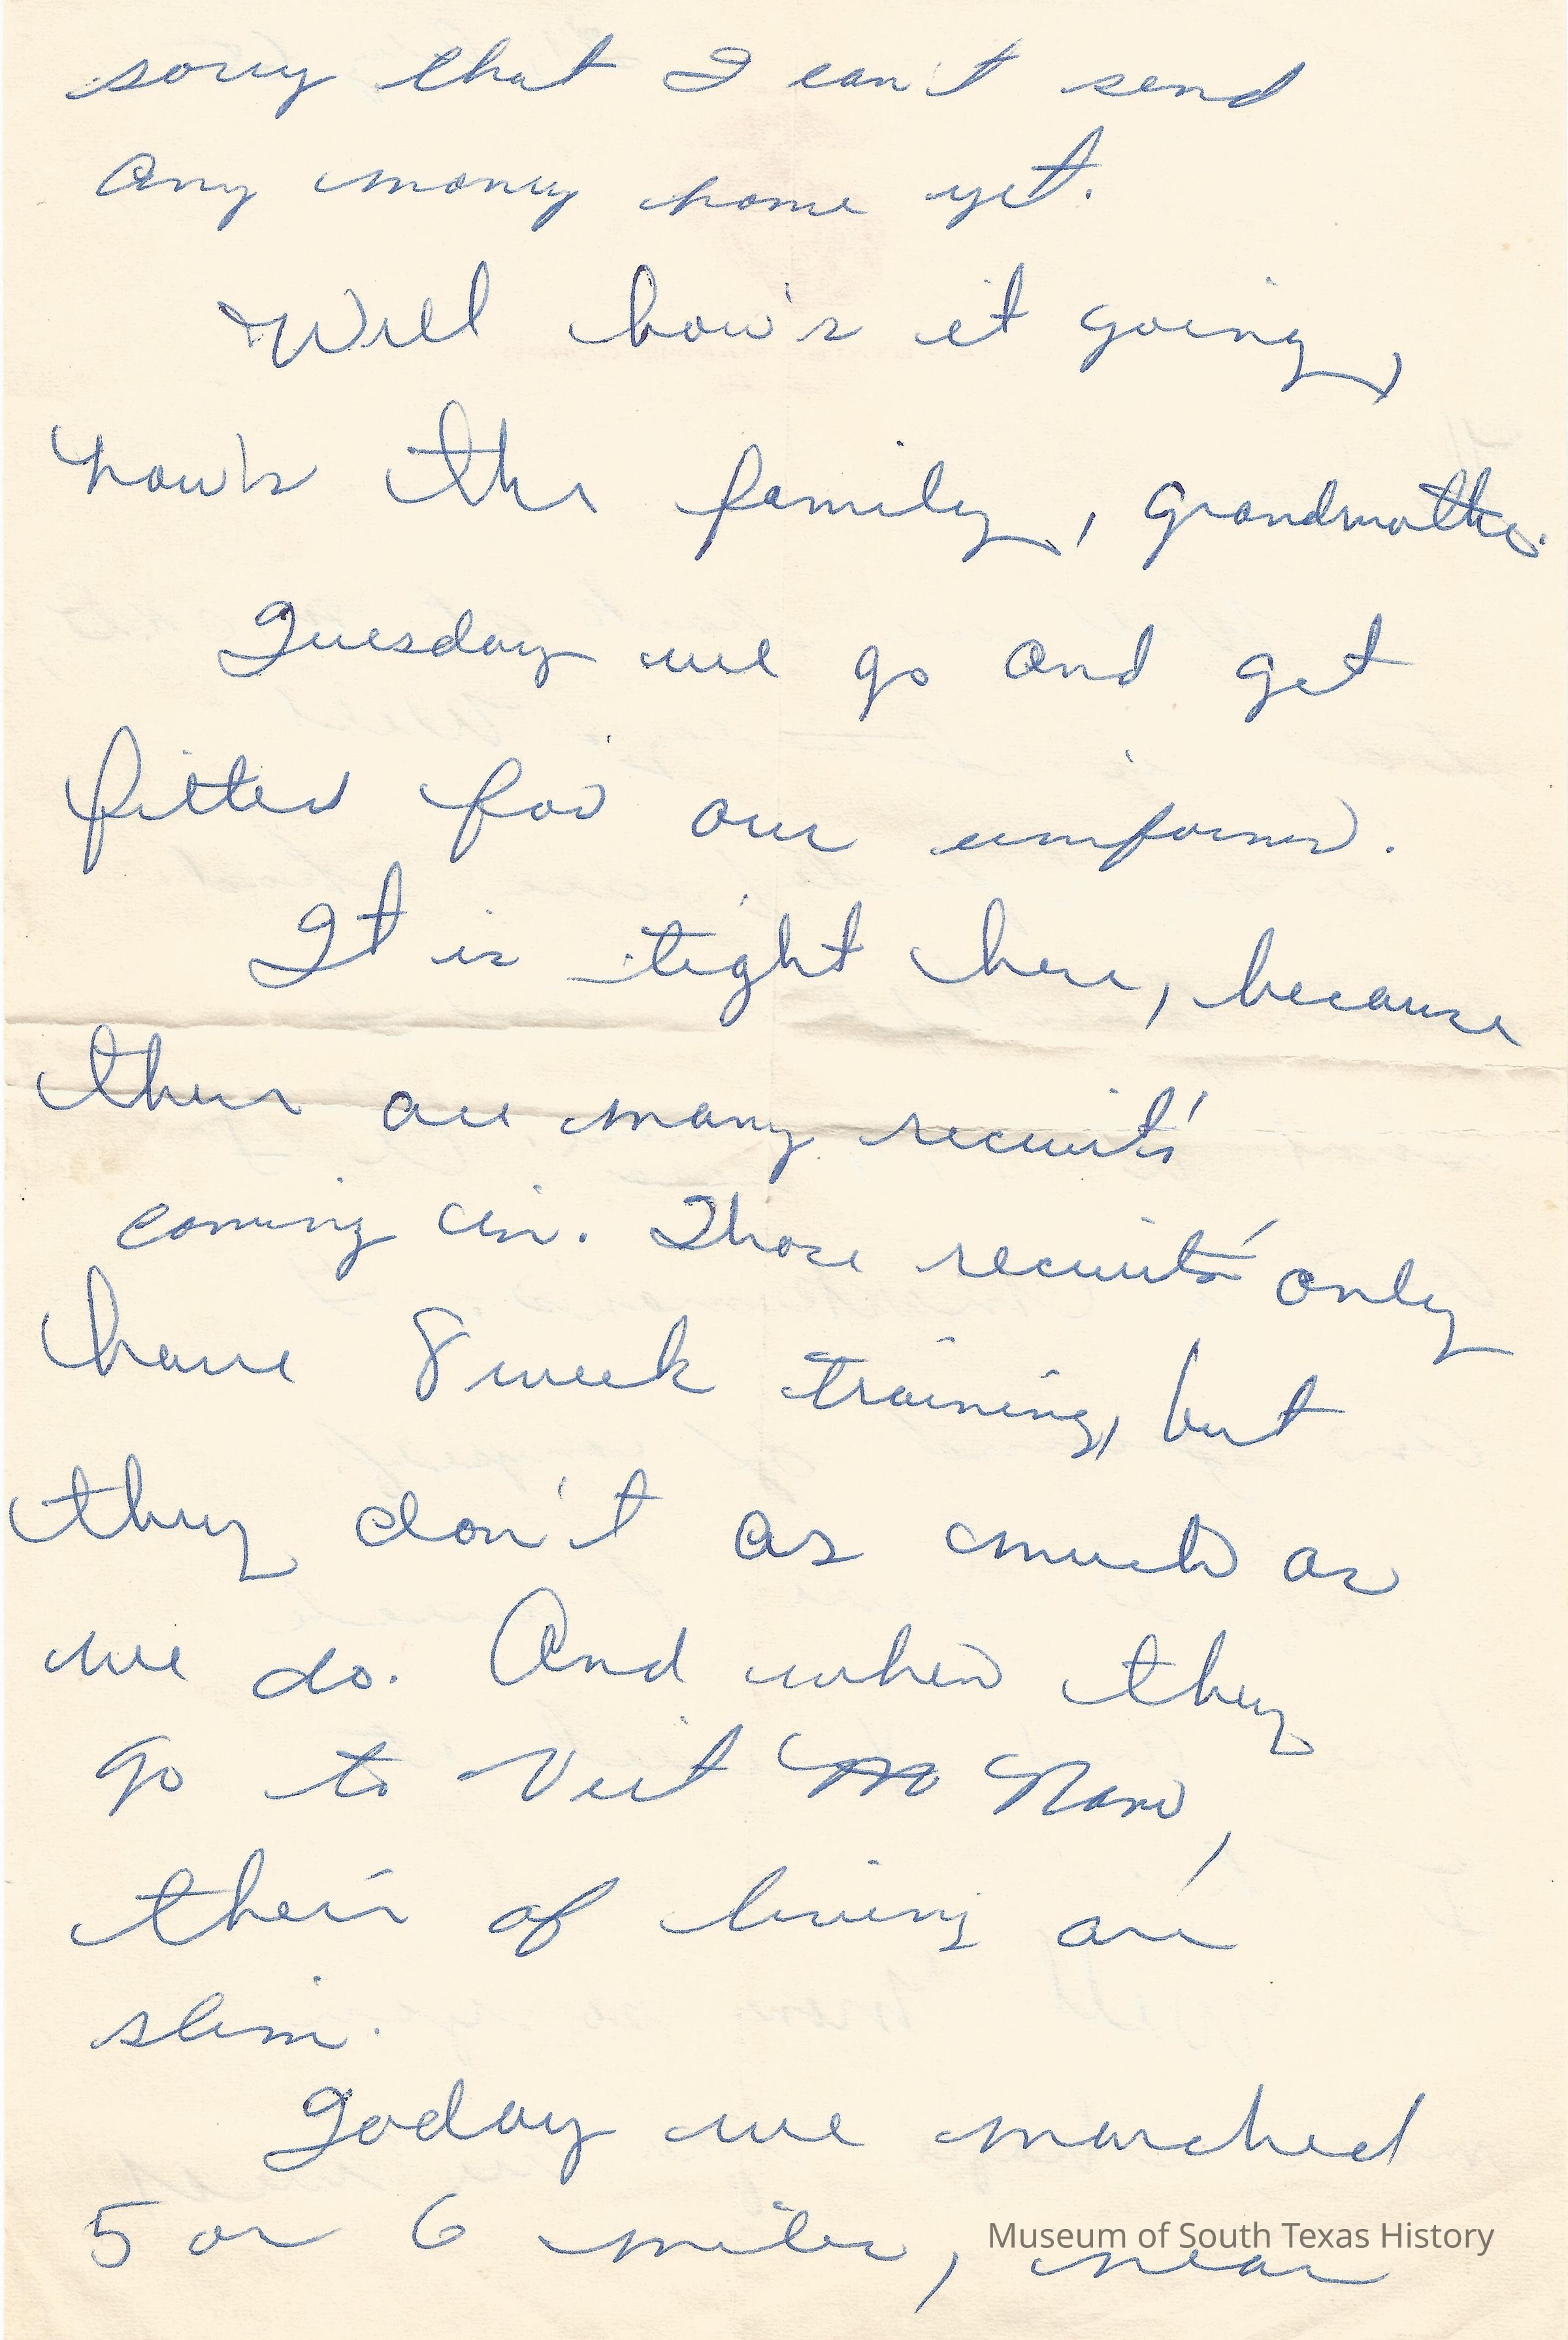 sorry that I can't send
any money home yet.
Well how's it going,
how's the family, grandmother.
Tuesday we go and get
fitted for our uniform.
It is tight here, because
there are many recruits'
coming in. Those recruits' only
have 8 week training, but
they don't as much as
we do. And when they
go to Viet Nam,
their of living are
slim.
Today we marched
5 or 6 miles, near
Museum of South Texas History